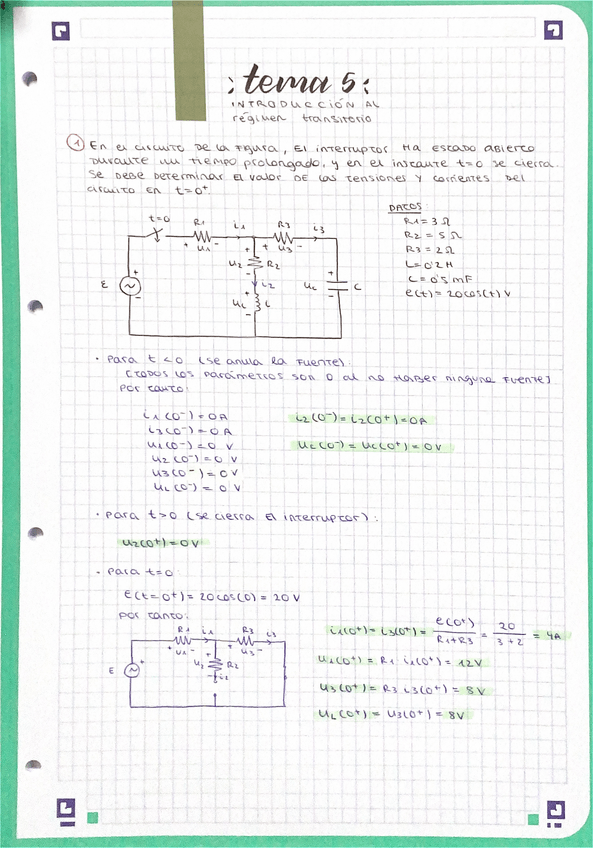 : tema 5 :
INTRODUCCIÓN AL
régimen transitorio
1 En el circuito de la figura, el interruptor ha estado abierto
durante un tiempo prolongado, y en el instante t=0 se cierra.
Se debe determinar el valor de las tensiones y corrientes del
circuito en t=0⁺.
DATOS:
R1= 3 Ω
R2 = 5 Ω
R3 = 2 Ω
L = 0'2 H
C = 0'5 mF
e(t) = 20cos(t) V
t=0 R1 i1 R3 i3
+ u1 - + u3 -
+ u2 - R2
i2
E + - uL + - L uC + - C
· Para t < 0 (se anula la fuente):
[todos los parámetros son 0 al no haber ninguna fuente]
por tanto:
i1(0⁻) = 0 A
i3(0⁻) = 0 A
u1(0⁻) = 0 V
u2(0⁻) = 0 V
u3(0⁻) = 0 V
uL(0⁻) = 0 V
i2(0⁻) = i2(0⁺) = 0A
uC(0⁻) = uC(0⁺) = 0V
· Para t>0 (se cierra el interruptor):
u2(0⁺) = 0 V
· Para t=0:
E(t=0⁺) = 20cos(0) = 20 V
por tanto:
R1 i1 R3 i3
+ u1 - + u3 -
E + - u2 + - R2
i2
i1(0⁺) = i3(0⁺) = e(0⁺) / R1+R3 = 20 / 3+2 = 4A
u1(0⁺) = R1 · i1(0⁺) = 12V
u3(0⁺) = R3 · i3(0⁺) = 8V
uL(0⁺) = u3(0⁺) = 8V